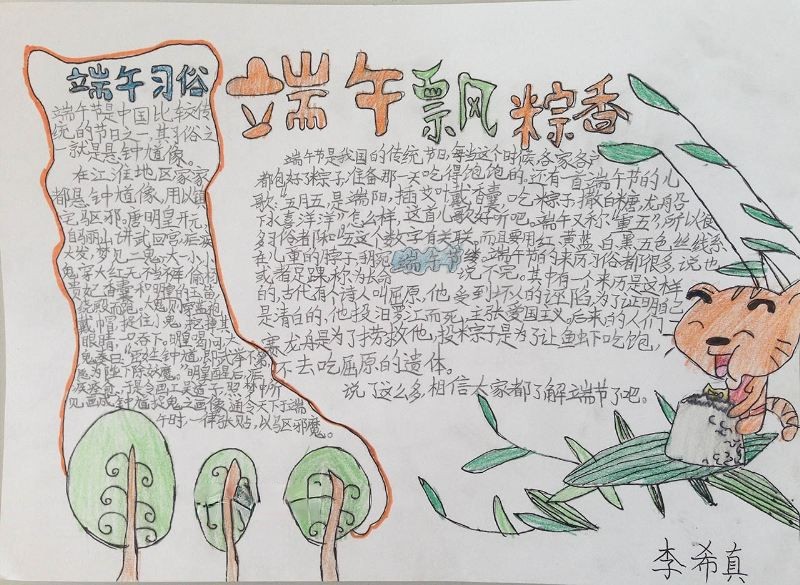 端午习俗
端午节是中国比较传
统的节日之一,其习俗之
一就是悬钟馗像。
在江淮地区家家
都悬钟馗像,用以镇
宅驱邪。唐明皇开元,
自骊山讲武回宫后疟疾
大发,梦见二鬼,一大一小,小
鬼穿大红无裆裤,偷杨
贵妃香囊和明皇的玉笛,
绕殿而跑。大鬼则穿蓝袍
戴帽,捉住小鬼,挖掉其
眼睛,一口吞下。明皇喝问,大
端午飘粽香
端午节是我国的传统节日,每当这个时候,各家各户
都包好了粽子,准备那一天吃得饱饱的,还有一首端午节的儿
歌:"五月五,是端阳,插艾叶,戴香囊,吃粽子,撒白糖,龙舟
下水喜洋洋"怎么样,这首儿歌好听吧。端午又称"重五",所以很
多习俗都和"五"这个数字有关联,而且要用红、黄、蓝、白、黑五色丝线系
在儿童的脖子
端午节
端午节的来历习俗都很多,说也
说不完。其中有一个来历是这样
的,古代有个诗人叫屈原,他受到坏人的诬陷,为了证明自己
是清白的,他投汨罗江而死,主张爱国主义。后来的人们
赛龙舟是为了捞救他,投粽子是为了让鱼虾吃饱,
不去吃屈原的遗体。
说了这么多,相信大家都了解端节了吧。
午时,一律张贴,以驱邪魔。
李希真